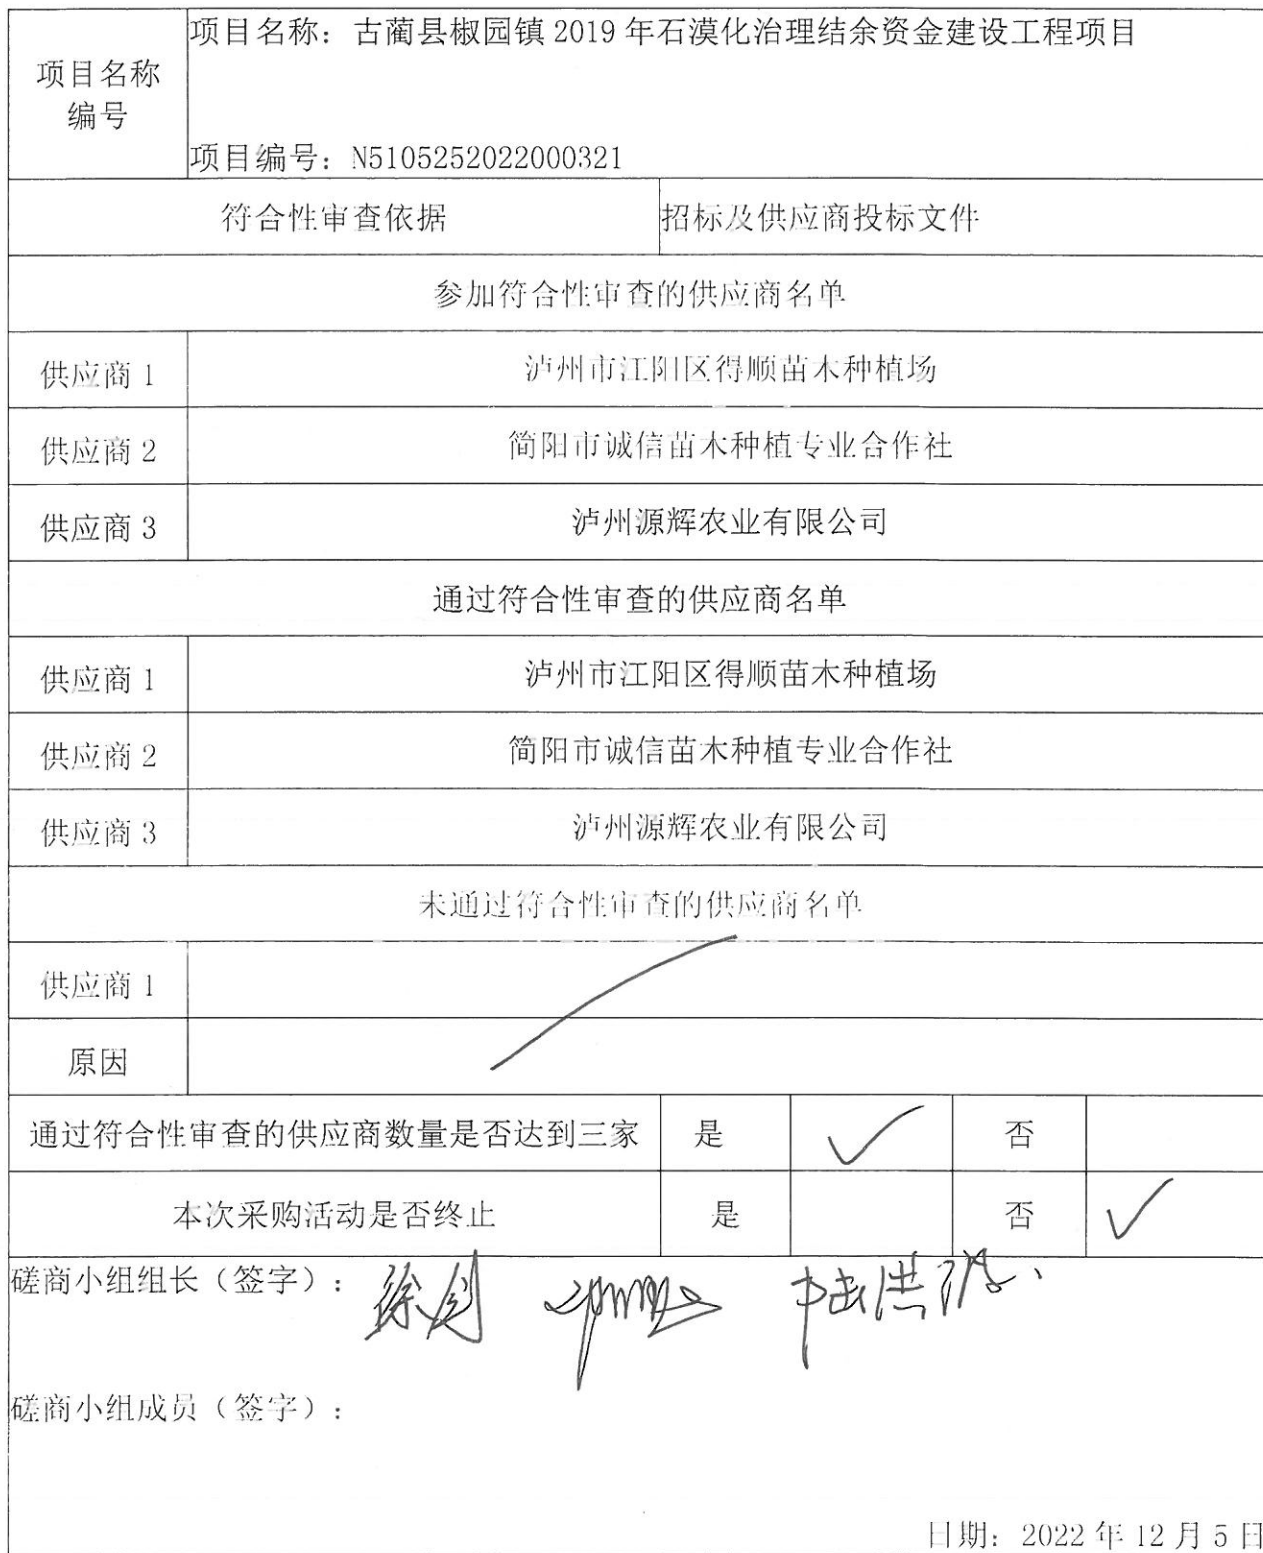 项目名称
编号
项目名称：古蔺县椒园镇 2019 年石漠化治理结余资金建设工程项目
项目编号：N5105252022000321
符合性审查依据 招标及供应商投标文件
参加符合性审查的供应商名单
供应商 1 泸州市江阳区得顺苗木种植场
供应商 2 简阳市诚信苗木种植专业合作社
供应商 3 泸州源辉农业有限公司
通过符合性审查的供应商名单
供应商 1 泸州市江阳区得顺苗木种植场
供应商 2 简阳市诚信苗木种植专业合作社
供应商 3 泸州源辉农业有限公司
未通过符合性审查的供应商名单
供应商 1
原因
通过符合性审查的供应商数量是否达到三家 是 ✓ 否
本次采购活动是否终止 是 否 ✓
磋商小组组长（签字）：
磋商小组成员（签字）：
日期：2022 年 12 月 5 日